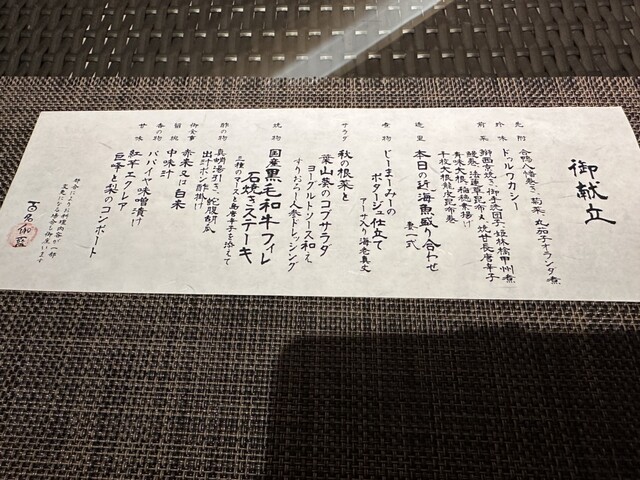 御献立
先附 合鴨八幡巻き 菊菜 丸茄子オランダ煮
珍味 ドゥルワカシー
前菜 御手洗団子 姫林檎甲州煮
鰻巻 法蓮草昆布〆 焼甘長唐辛子
青味大根 稲穂素揚げ
千枚大根龍皮昆布巻
造里 本日の近海魚盛り合わせ
妻一式
煮物 じーまーみーの
ポタージュ仕立て
アーサ入り海老真丈
サラダ 秋の根菜と
葉山葵のコブサラダ
ヨーグルトソース和え
すりおろし人参ドレッシング
焼物 国産黒毛和牛フィレ
石焼きステーキ
三種のソースと島唐辛子を添えて
酢の物 真蛸湯引き 蛇腹胡瓜
出汁ポン酢掛け
御食事 赤米又は白米
留椀 中味汁
香の物 パパイヤ味噌漬け
甘味 紅芋エクレア
巨峰と梨のコンポート
都合により料理内容が一部
変更になる場合も御座います
百名伽藍